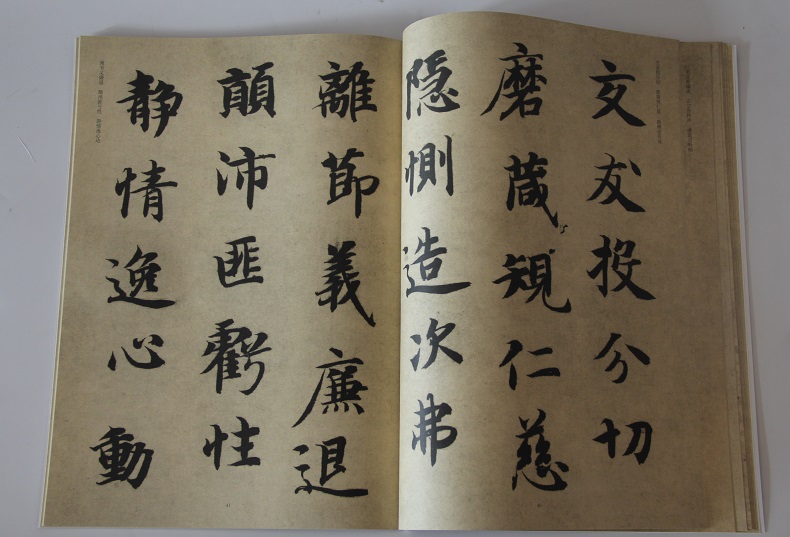 交友投分切
磨葴規仁慈
隐惻造次弗
離節義廉退
顛沛匪虧性
静情逸心動